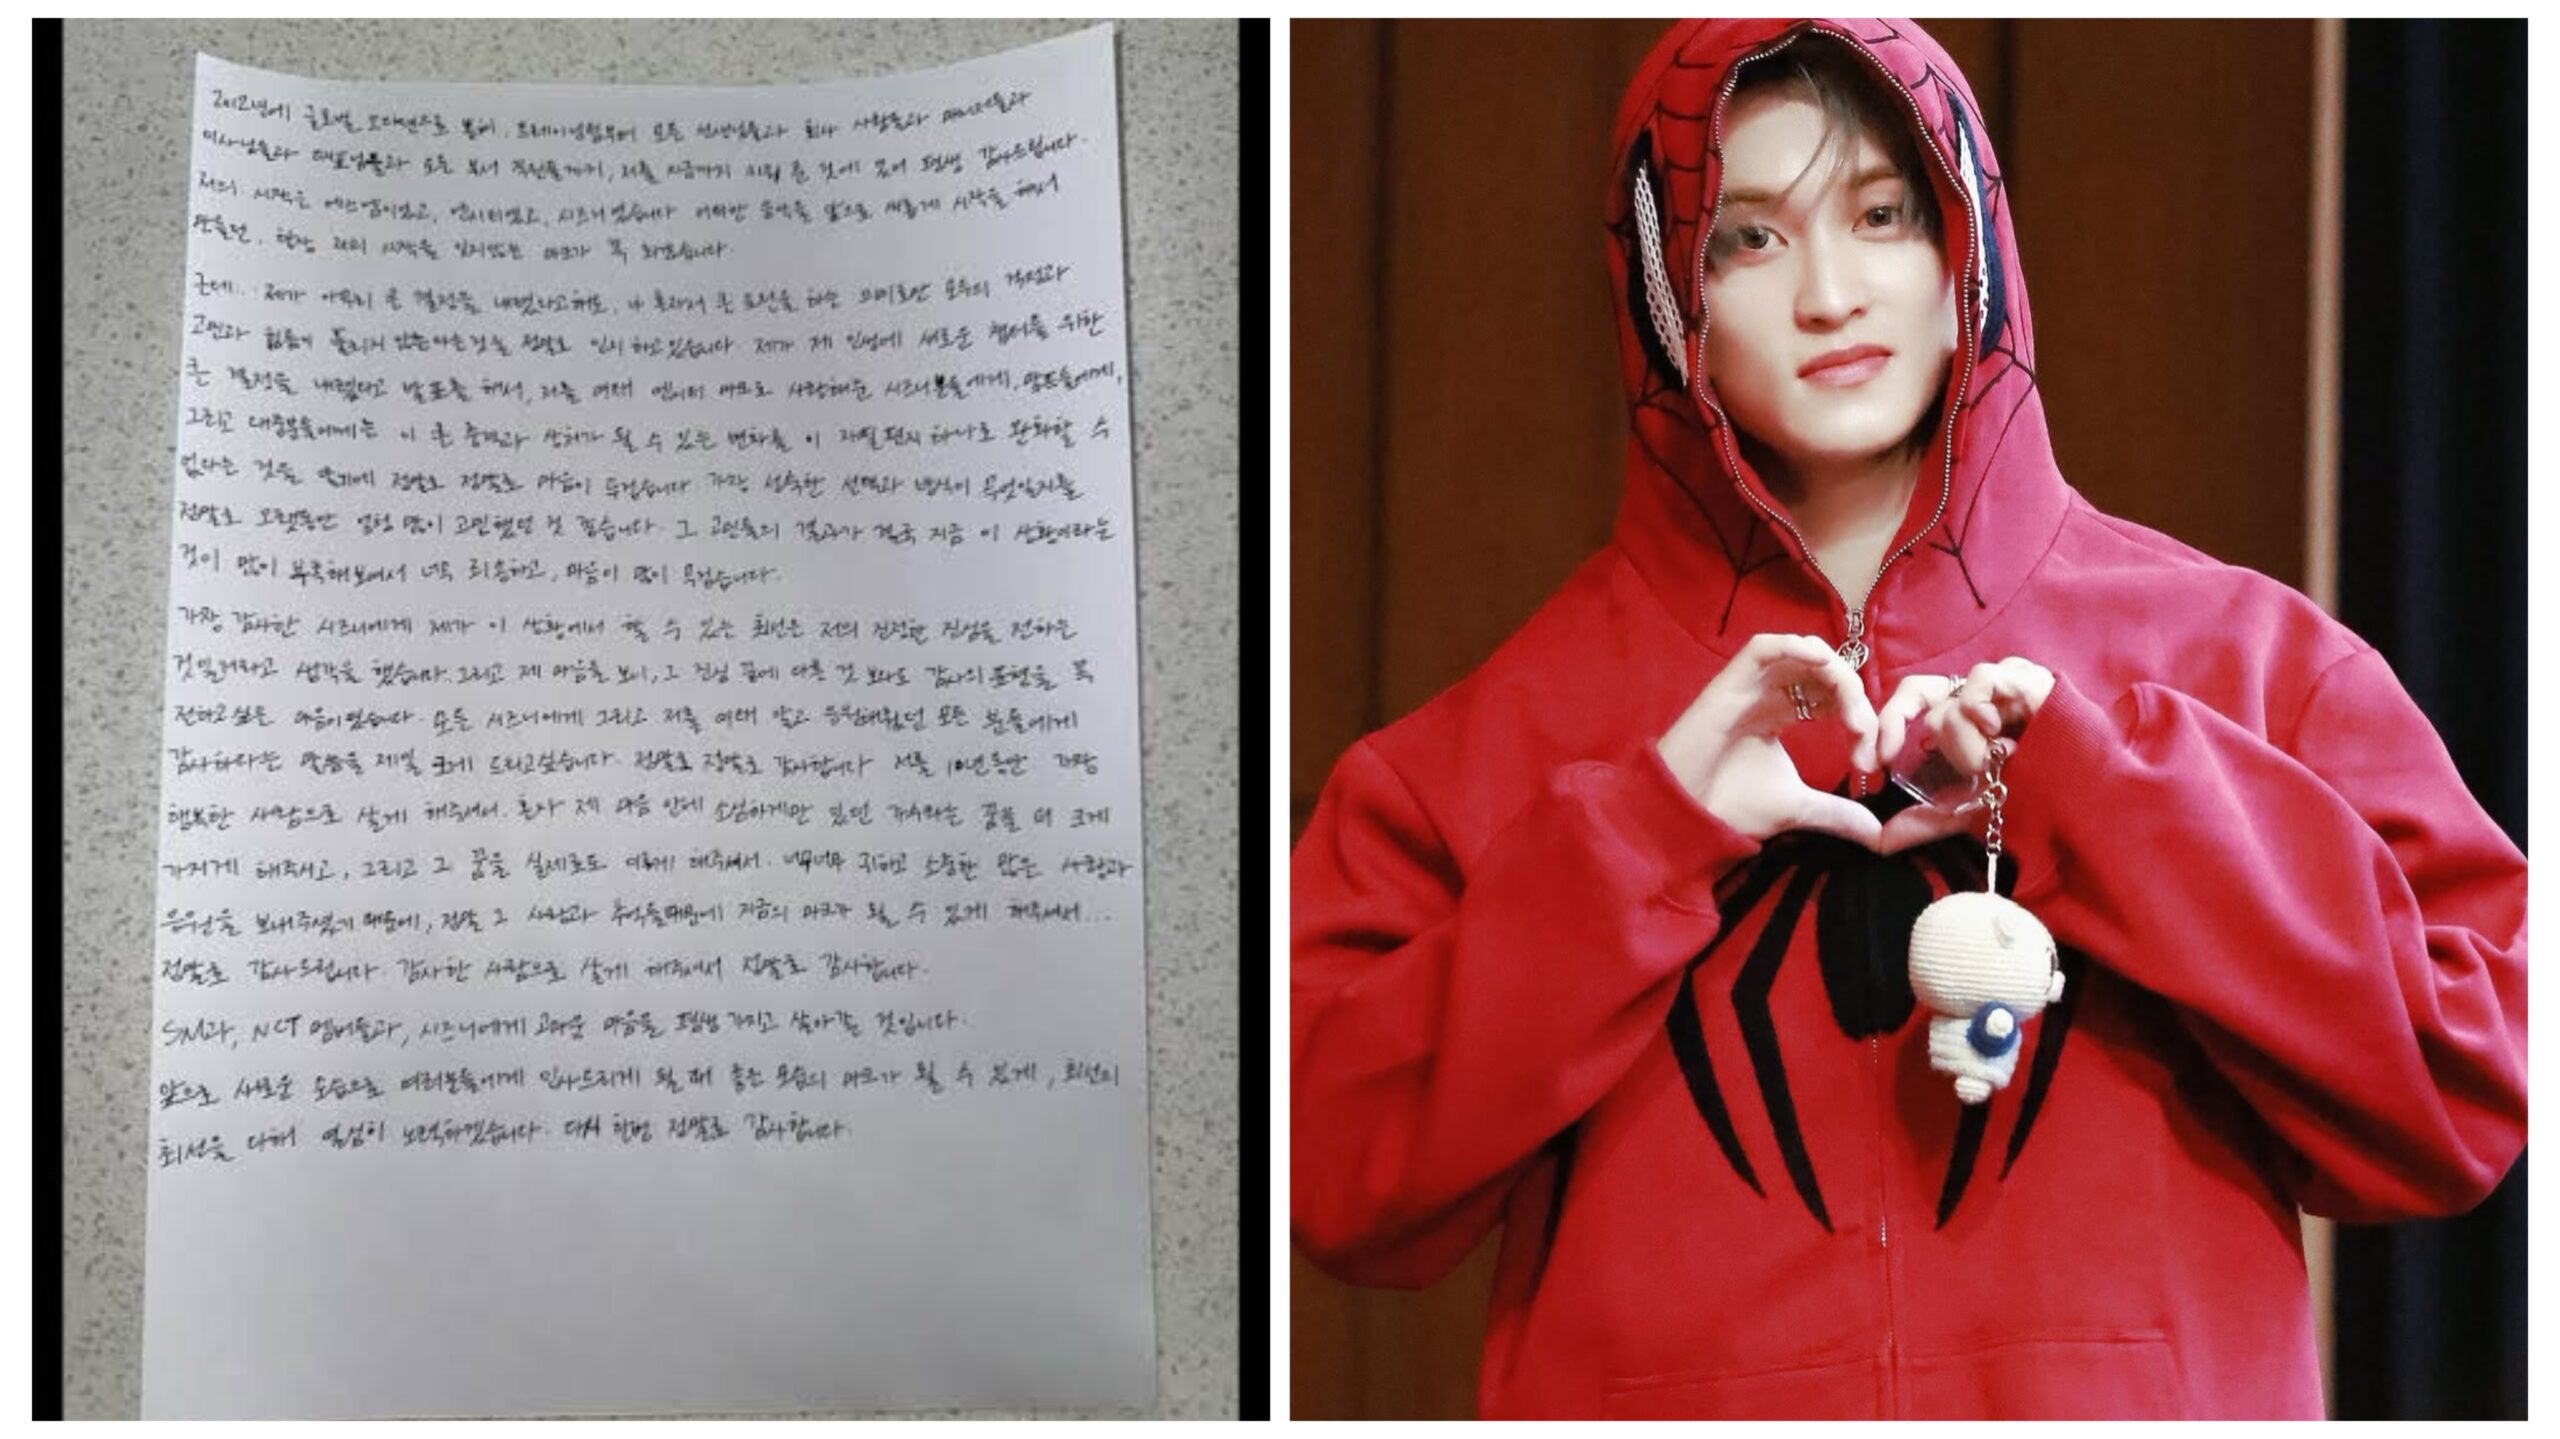 2012년에 글로벌 오디션으로 붙어, 트레이닝팀부터 모든 선생님들과 회사 사람들과 매니저들과
이사님들과 대표님들과 모든 부서 직원들까지, 저를 지금까지 키워 준 것에 있어 평생 감사드립니다.
저의 시작은 에스엠이었고, 엔시티였고, 시즈니였습니다. 어떠한 음악을 앞으로 새롭게 시작을 해서
만들던, 항상 저의 시작을 잊지않는 마크가 꼭 되겠습니다.
근데.. 제가 아무리 큰 결정을 내렸다고해도, 나 혼자서 큰 도전을 하는 의미로만 모두의 걱정과
고민과 힘듦이 풀리지 않는다는것을 정말로 인지하고있습니다. 제가 제 인생에 새로운 챕터를 위한
큰 결정을 내렸다고 발표를 해서, 저를 여태 엔시티 마크로 사랑해준 시즈니분들에게, 맘프들에게,
그리고 대중분들에게는 이 큰 충격과 상처가 될 수 있는 변화를 이 자필편지 하나로 완화할 수
없다는 것을 알기에 정말로 정말로 마음이 무겁습니다. 가장 성숙한 선택과 방식이 무엇일지를
정말로 오랫동안 엄청 많이 고민했던 것 같습니다. 그 고민들의 결과가 결국 지금 이 상황이라는
것이 많이 부족해보여서 너무 죄송하고, 마음이 많이 무겁습니다.
가장 감사한 시즈니에게 제가 이 상황에서 할 수 있는 최선은 저의 진정한 진심을 전하는
것일거라고 생각을 했습니다. 그리고 제 마음을 보니, 그 진심 끝에 다른 것 보다도 감사의 표현을 꼭
전하고싶은 마음이었습니다. 모든 시즈니에게 그리고 저를 여태 알고 응원해줬던 모든 분들에게
감사하다는 말씀을 제일 크게 드리고싶습니다. 정말로 정말로 감사합니다. 저를 10년동안 가장
행복한 사람으로 살게 해주셔서. 혼자 제 마음 안에 소심하게만 있던 가수라는 꿈을 더 크게
가지게 해주시고, 그리고 그 꿈을 실제로도 이루게 해주셔서. 너무너무 귀하고 소중한 많은 사랑과
응원을 보내주셨기 때문에, 정말 그 사랑과 추억들때문에 지금의 마크가 될 수 있게 해주셔서...
정말로 감사드립니다. 감사한 사람으로 살게 해주셔서 정말로 감사합니다.
SM과, NCT 멤버들과, 시즈니에게 고마운 마음을 평생 가지고 살아갈 것입니다.
앞으로 새로운 모습으로 여러분들에게 인사드리게 될 때 좋은 모습의 마크가 될 수 있게, 최선의
최선을 다해 열심히 노력하겠습니다. 다시 한번 정말로 감사합니다.